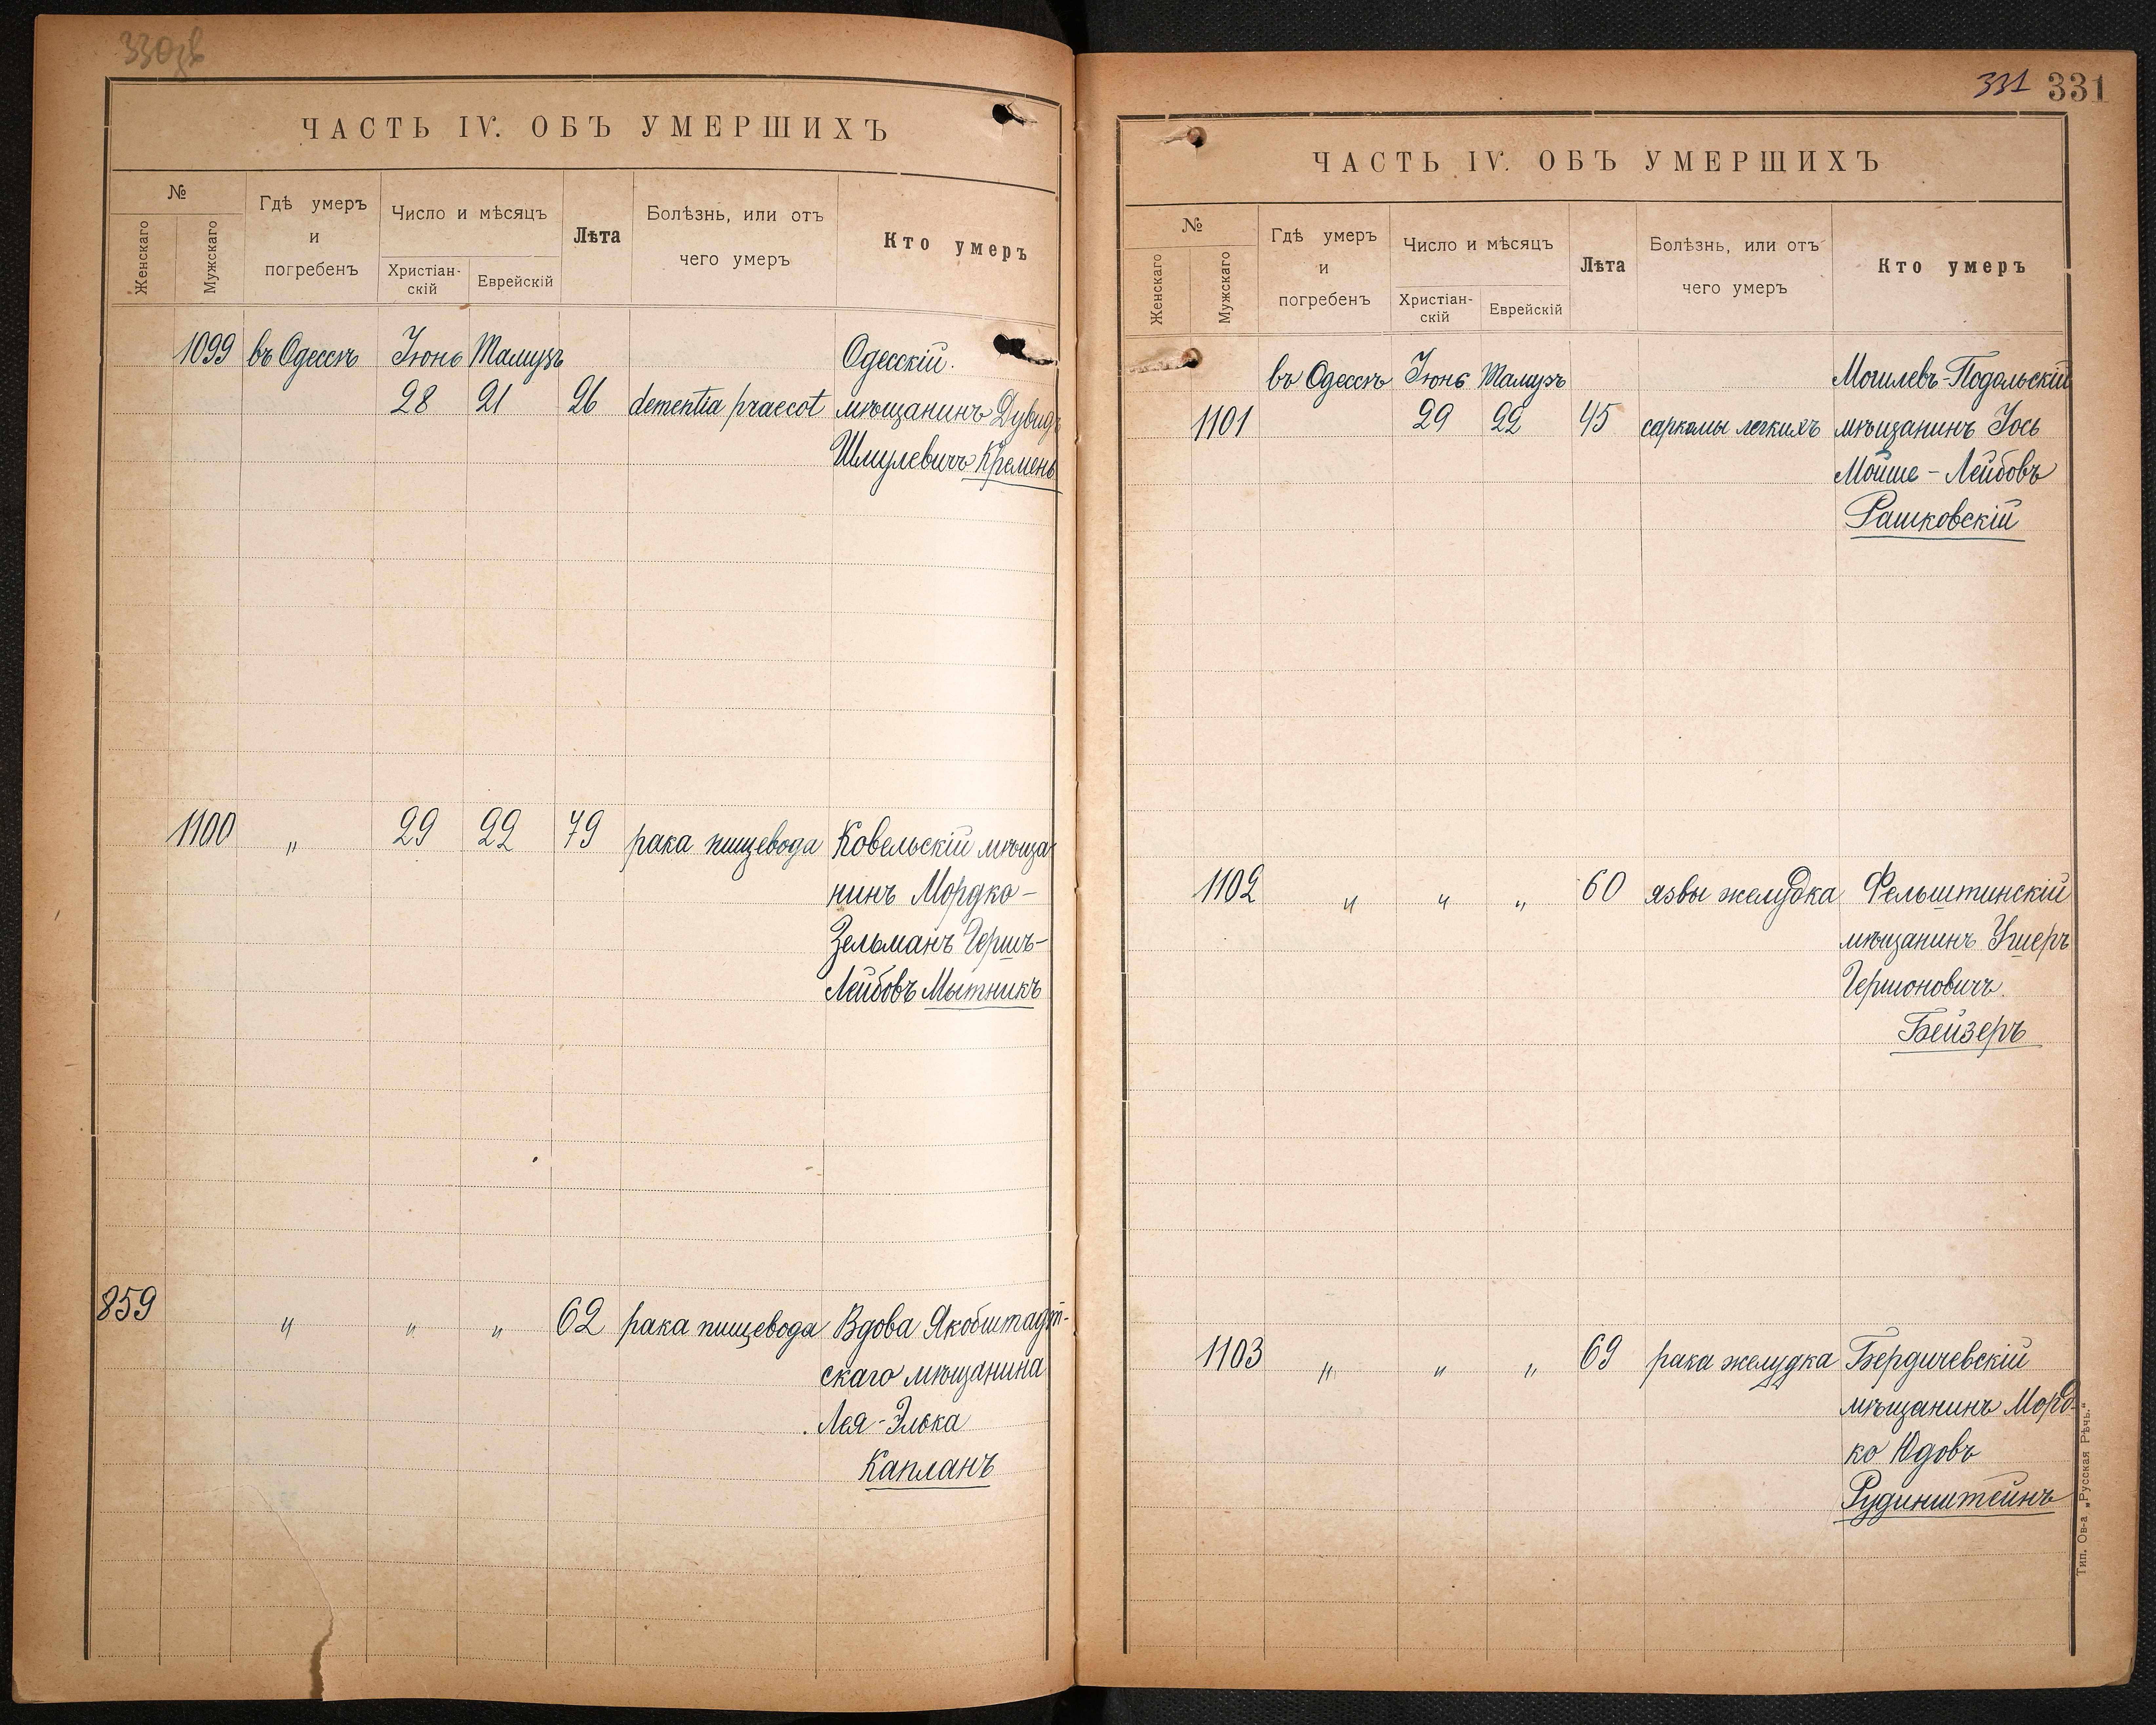 ЧАСТЬ IV. ОБЪ УМЕРШИХЪ
№
Женскаго
Мужскаго
Гдѣ умеръ
и
погребенъ
Число и мѣсяцъ
Христіан-
скій
Еврейскій
Лѣта
Болѣзнь, или отъ
чего умеръ
Кто умеръ
1099 въ Одессѣ Іюнь Тамузъ Одесскій
28 21 26 dementia praecot мѣщанинъ Дувидъ
Шмулевичъ Кремень
1100 " 29 22 79 рака пищевода Ковельскій мѣща
нинъ Мордко-
Зельманъ Гершъ-
Лейбовъ Мытникъ
859 " " " 62 рака пищевода Вдова Якобштадт-
скаго мѣщанина
Лея-Элька
Капланъ
331 331
ЧАСТЬ IV. ОБЪ УМЕРШИХЪ
№
Женскаго
Мужскаго
Гдѣ умеръ
и
погребенъ
Число и мѣсяцъ
Христіан-
скій
Еврейскій
Лѣта
Болѣзнь, или отъ
чего умеръ
Кто умеръ
въ Одессѣ Іюнь Тамузъ Могилевъ-Подольскій
1101 29 22 45 саркомы легкихъ мѣщанинъ Іось
Мойше-Лейбовъ
Рашковскій
1102 " " " 60 язвы желудка Фельштинскій
мѣщанинъ Ушеръ
Гершоновичъ
Бейзеръ
1103 " " " 69 рака желудка Бердичевскій
мѣщанинъ Морд-
ко Юдовъ
Рудинштейнъ
Тип. Ов-а „Русская Рѣчь.“